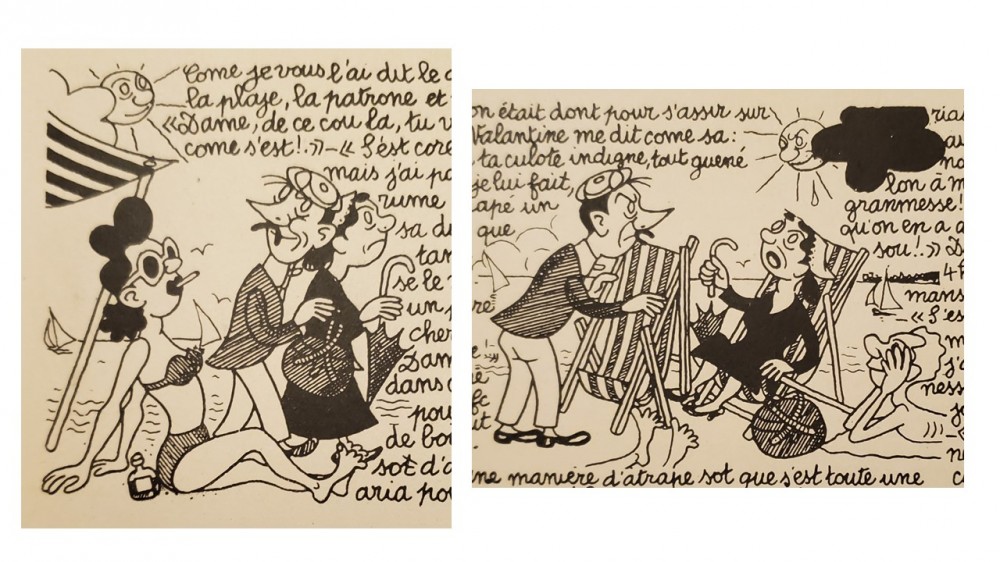 Come je vous l'ai dut le
la plaje, la patrone et
«Dame, de ce cou la, tu
come s'est!.»-« S'ést
mais j'ai
rume
sa
se le
un
dans
de
sot d'a
aria
on était dont pour s'assir sur
Valantine me dit come sa:
ta culote indigne, tout guené
je lui fait,
apé un
que
lon à
granmesse!
qu'on en a
sou!.»
mans
« S'es
ness
ne manière d'atrape sot que s'est toute une